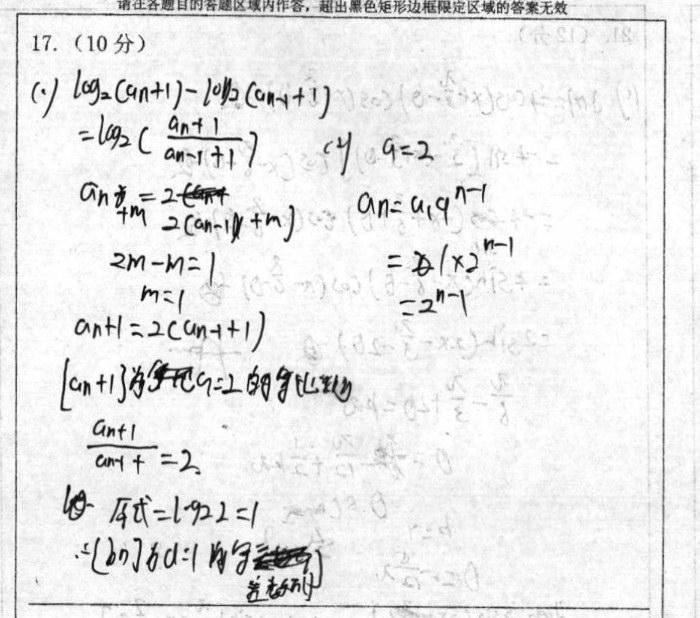 请在各题目的答题区域内作答，超出黑色矩形边框限定区域的答案无效
17.（10分）
(1) log₂(an+1)-log₂(an-1+1)
=log₂(an+1/an-1+1)
an+m=2(an-1+m)
2m-m=1
m=1
an+1=2(an-1+1)
{an+1}为q=2的等比数列
an+1/an-1+=2
原式=log22=1
∴{bn}为d=1的等差数列
(2) q=2
an=a₁qⁿ⁻¹
=1×2ⁿ⁻¹
=2ⁿ⁻¹